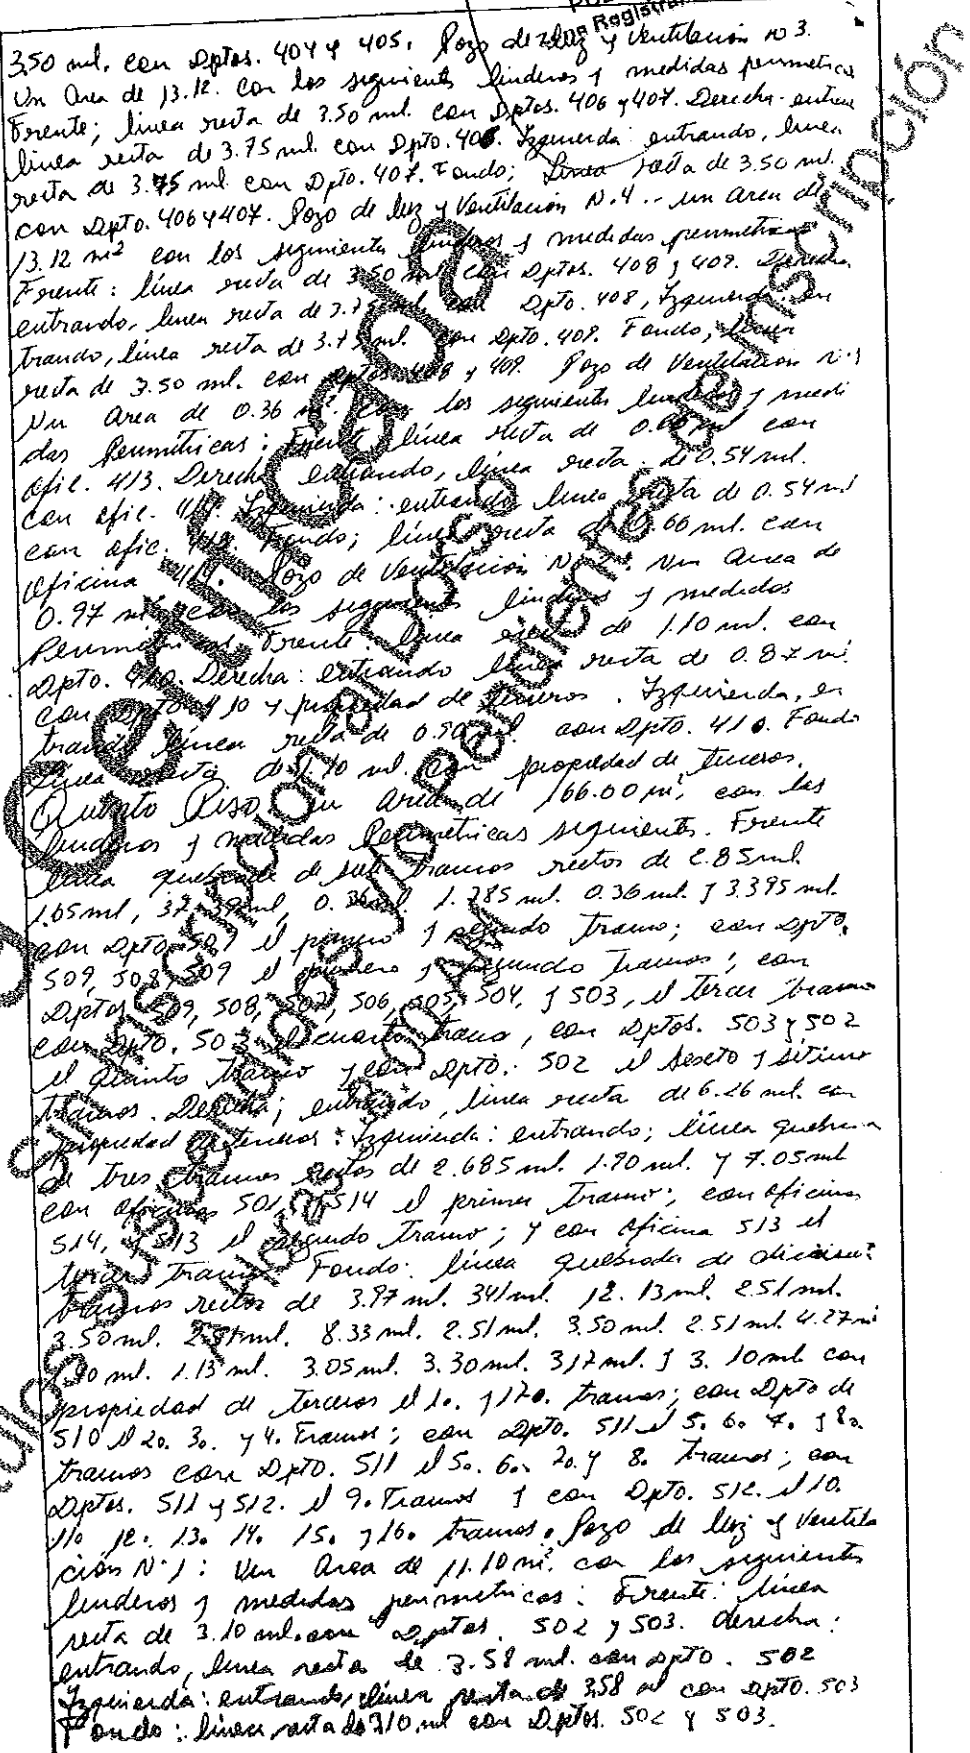 3.50 ml. con Dptos. 404 y 405. Pozo de luz y Ventilación N° 3.
Un Area de 13.12. con los siguientes linderos y medidas perimetricas
Frente; línea recta de 3.50 ml. con Dptos. 406 y 407. Derecha entran
línea recta de 3.75 ml. con Dpto. 406. Izquierda entrando, línea
recta de 3.75 ml con Dpto. 407. Fondo; Línea recta de 3.50 ml.
con Dpto. 406 y 407. Pozo de luz y Ventilación N. 4.- un area de
13.12 m² con los siguientes linderos y medidas perimetricas
Frente: línea recta de 3.50 ml con Dptos. 408 y 409. Derecha
entrando, línea recta de 3.75 ml con Dpto. 408, Izquierda: en
trando, línea recta de 3.75 ml. con Dpto. 409. Fondo; línea
recta de 3.50 ml. con Dptos 408 y 409. Pozo de Ventilación N.1
Un Area de 0.36 m². con los siguientes linderos y medi
das Perimétricas: Frente línea recta de 0.66 ml con
ofic. 413. Derecha entrando, línea recta de 0.54 ml.
con ofic. Izquierda: entrando línea recta de 0.54 ml
con ofic. Fondo; línea recta de 0.66 ml. con
Oficina 414. Pozo de Ventilación N° 2. Un Area de
0.97 m² con los siguientes linderos y medidas
Perimétricas. Frente: línea recta de 1.10 ml. con
Dpto. 410. Derecha: entrando línea recta de 0.87 ml.
con Dpto 410 y propiedad de terceros. Izquierda, en
trando línea recta de 0.90 ml. con Dpto. 410. Fondo
línea recta de 1.10 ml. con propiedad de terceros.
Quinto Piso un area de 166.00 m², con los
linderos y medidas Perimetricas siguientes. Frente
línea quebrada de siete tramos rectos de 2.85 ml.
1.65 ml, 37.39 ml, 0.36 ml. 1.785 ml. 0.36 ml. y 3.395 ml.
con Dpto 509 el primero y segundo tramo; con Dpto.
509, 508, 509 el primero y segundo tramos; con
Dptos 509, 508, 507, 506, 505, 504, y 503, el tercer tramo
con Dpto. 503 el cuarto tramo, con Dptos. 503 y 502
el quinto tramo y con Dpto.: 502 el sexto y sétimo
tramos. Derecha; entrando, línea recta de 6.26 ml. con
propiedad de terceros: Izquierda: entrando; línea quebra
de tres tramos rectos de 2.685 ml. 1.90 ml. y 7.05 ml
con oficinas 501, y 514 el primer tramo; con oficina
514, y 513 el segundo tramo; y con oficina 513 el
tercer tramo. Fondo: línea quebrada de diecisie:
tramos rectos de 3.97 ml. 3.41 ml. 12.13 ml. 2.51 ml.
3.50 ml. 2.51 ml. 8.33 ml. 2.51 ml. 3.50 ml. 2.51 ml. 4.27 ml
1.90 ml. 1.13 ml. 3.05 ml. 3.30 ml. 3.17 ml. y 3.10 ml. con
propiedad de terceros el 1o. y 17o. tramos; con Dpto de
510 el 2o. 3o. y 4. Tramos; con Dpto. 511 el 5. 6o 7. y 8o.
tramos con Dpto. 511 el 5o. 6o. 7o. y 8. tramos; con
Dptos. 511 y 512. el 9. Tramos y con Dpto. 512. el 10.
11o 12. 13o 14. 15o y 16o tramos. Pozo de luz y Ventila
ción N° 1: Un Area de 11.10 m². con los siguientes
linderos y medidas perimetricas: Frente: línea
recta de 3.10 ml. con Dptos. 502 y 503. derecha:
entrando, línea recta de 3.58 ml. con Dpto. 502
Izquierda: entrando, línea recta de 3.58 ml con Dpto. 503
Fondo: línea recta de 3.10 ml con Dptos. 502 y 503.